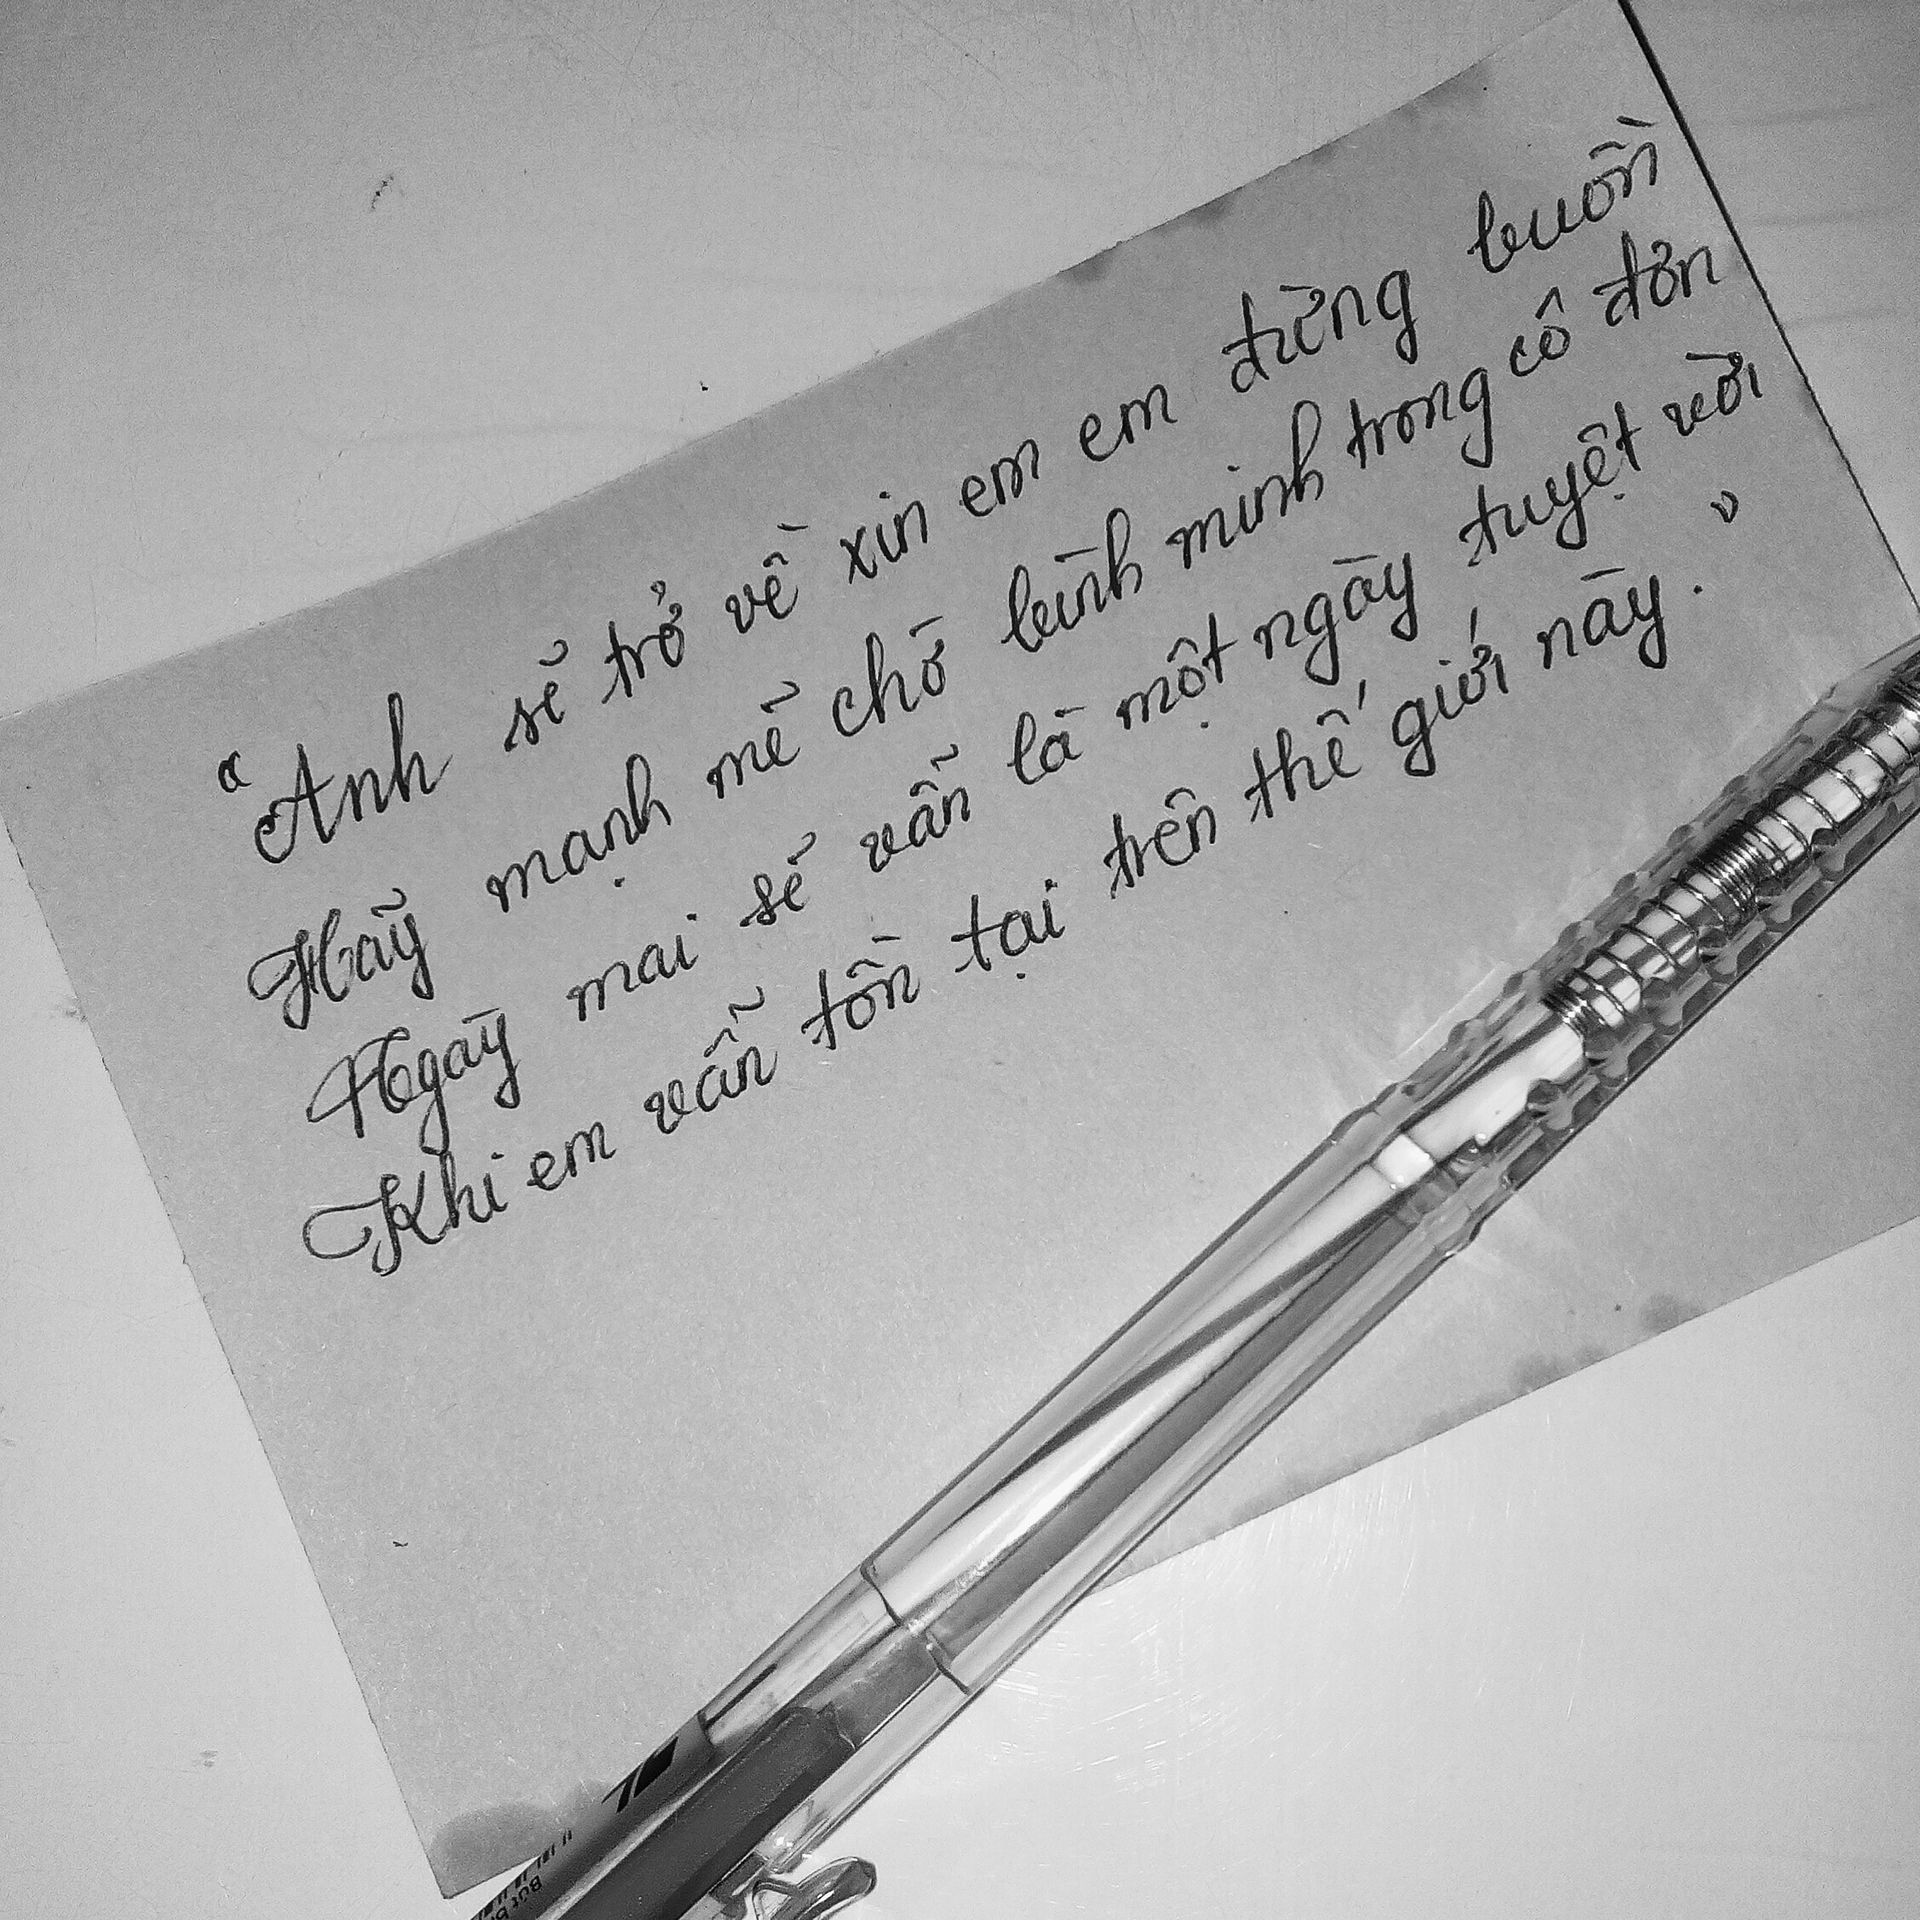 “Anh sẽ trở về xin em em đừng buồn
Hãy mạnh mẽ chờ bình minh trong cô đơn
Ngày mai sẽ vẫn là một ngày tuyệt vời
Khi em vẫn tồn tại trên thế giới này.”
Bút b